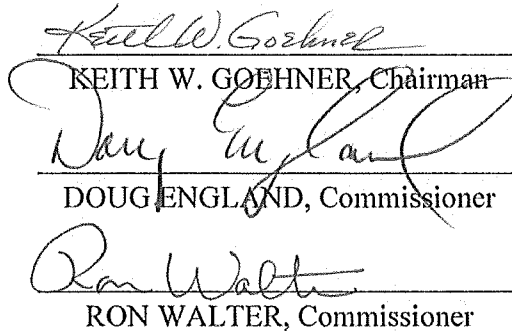 Keith W. Goehner
KEITH W. GOEHNER, Chairman
Doug England
DOUG ENGLAND, Commissioner
Ron Walter
RON WALTER, Commissioner